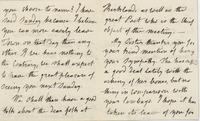 you choose to name! I have
said Sunday because I believe
You can more easily leave
Town on that day than any
other. If we hear nothing to
the contrary, we shall expect
to have the great pleasure of
seeing you next Sunday.
We shall then have a good
talk about the dear folk at
as well as the
great Poet who is the third
object of this meeting.
My Sister thanks you for
your kind mention of her &
your sympathy. She has
a good deal lately with the
of her home but
in your company
yours. I hope it has
taken its leave of you for